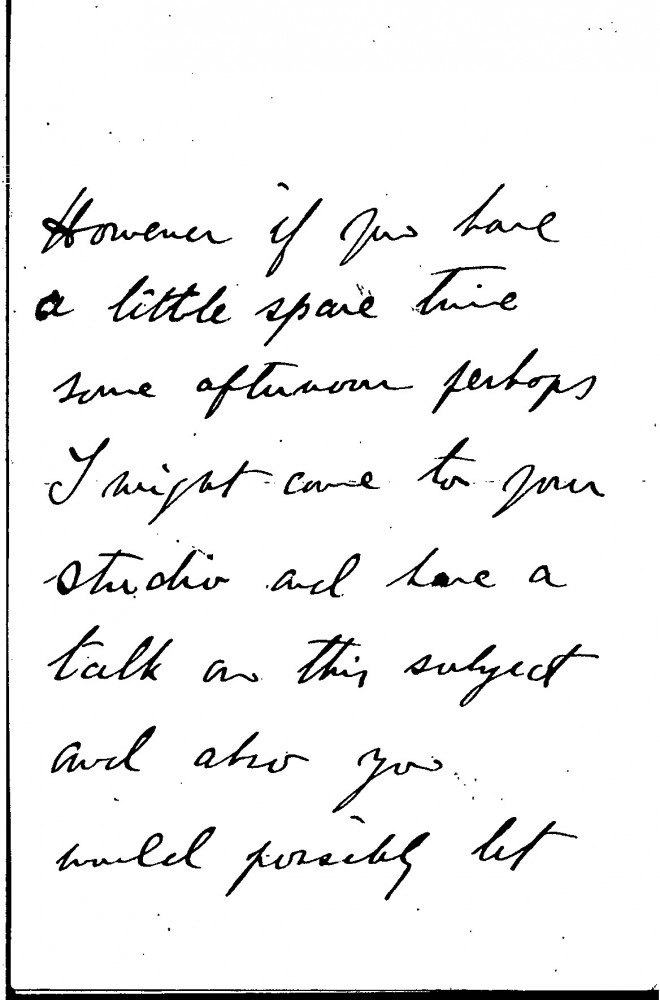 However if you have
a little spare time
some afternoon perhaps
I might come to your
studio and have a
talk on this subject
and also you
would possibly let